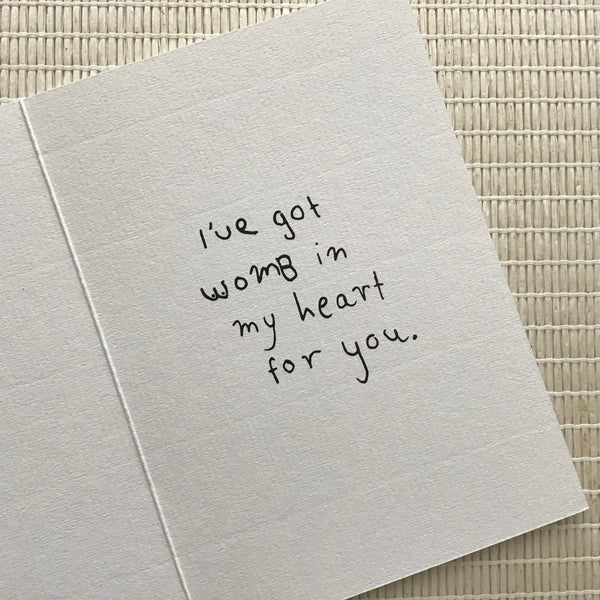 I've got
womB in
my heart
for you.